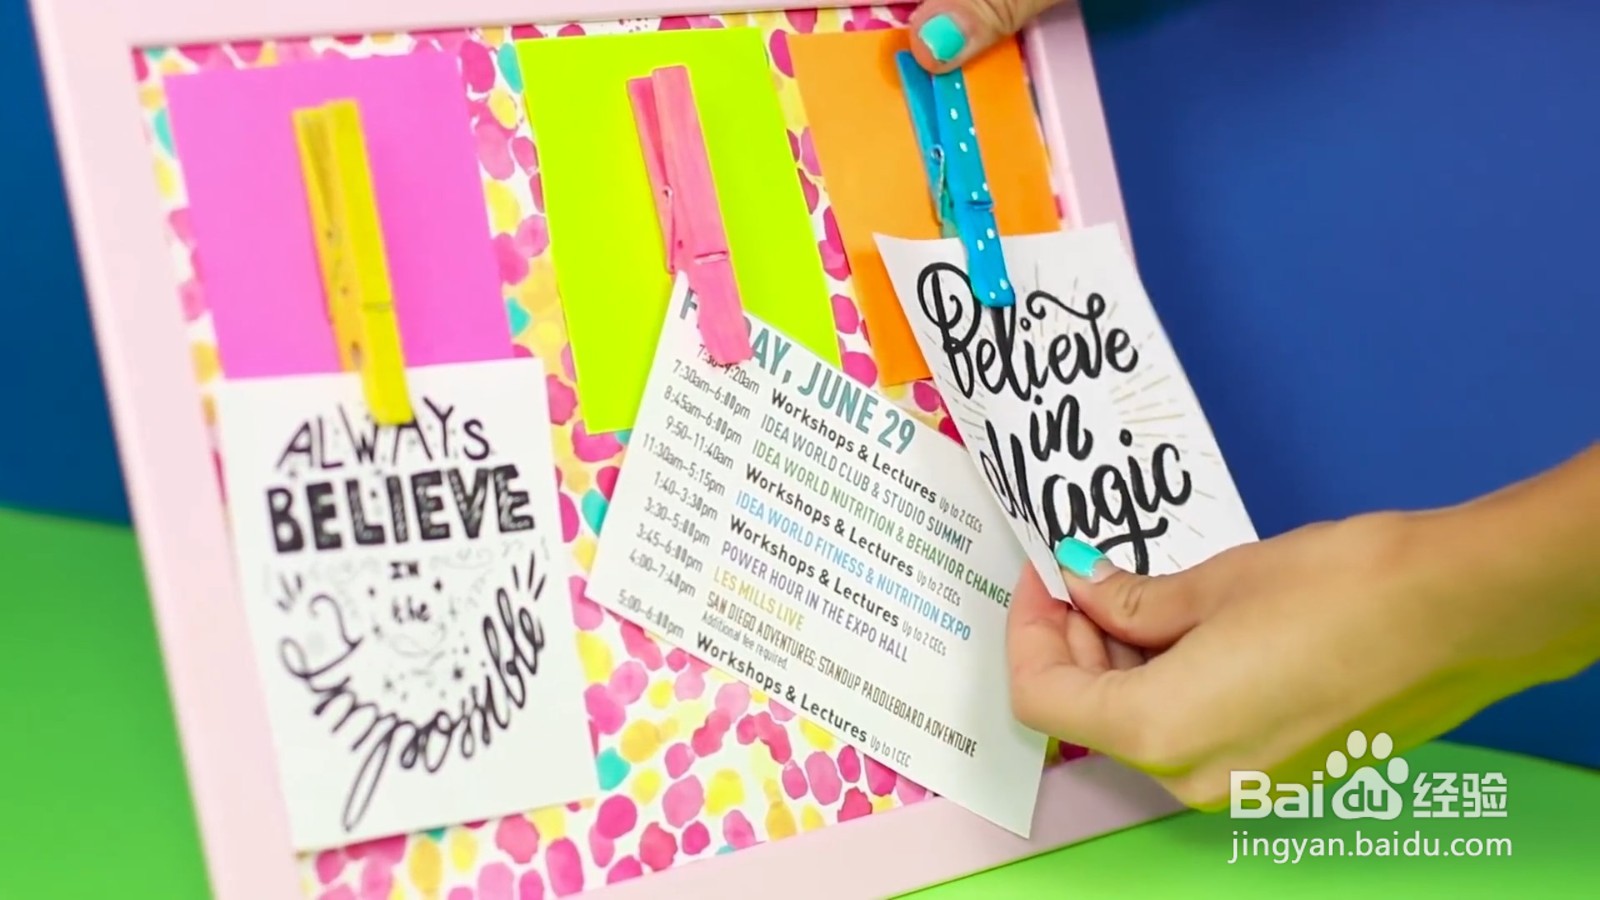 ALWAYS
BELIEVE
IN
the
Impossible
FRIDAY, JUNE 29
7:30am–6:00pm
8:45am–6:00pm
9:50–11:40am
11:30am–5:15pm
1:40–3:30pm
3:30–5:00pm
3:45–6:00pm
4:00–7:40pm
5:00–6:00pm
Workshops & Lectures Up to 2 CECs
IDEA WORLD CLUB & STUDIO SUMMIT
IDEA WORLD NUTRITION & BEHAVIOR CHANGE
Workshops & Lectures Up to 2 CECs
IDEA WORLD FITNESS & NUTRITION EXPO
Workshops & Lectures Up to 2 CECs
POWER HOUR IN THE EXPO HALL
LES MILLS LIVE
SAN DIEGO ADVENTURES: STANDUP PADDLEBOARD ADVENTURE
Additional fee required.
Workshops & Lectures Up to 1 CEC
Believe
in
Magic
Baidu 经验
jingyan.baidu.com